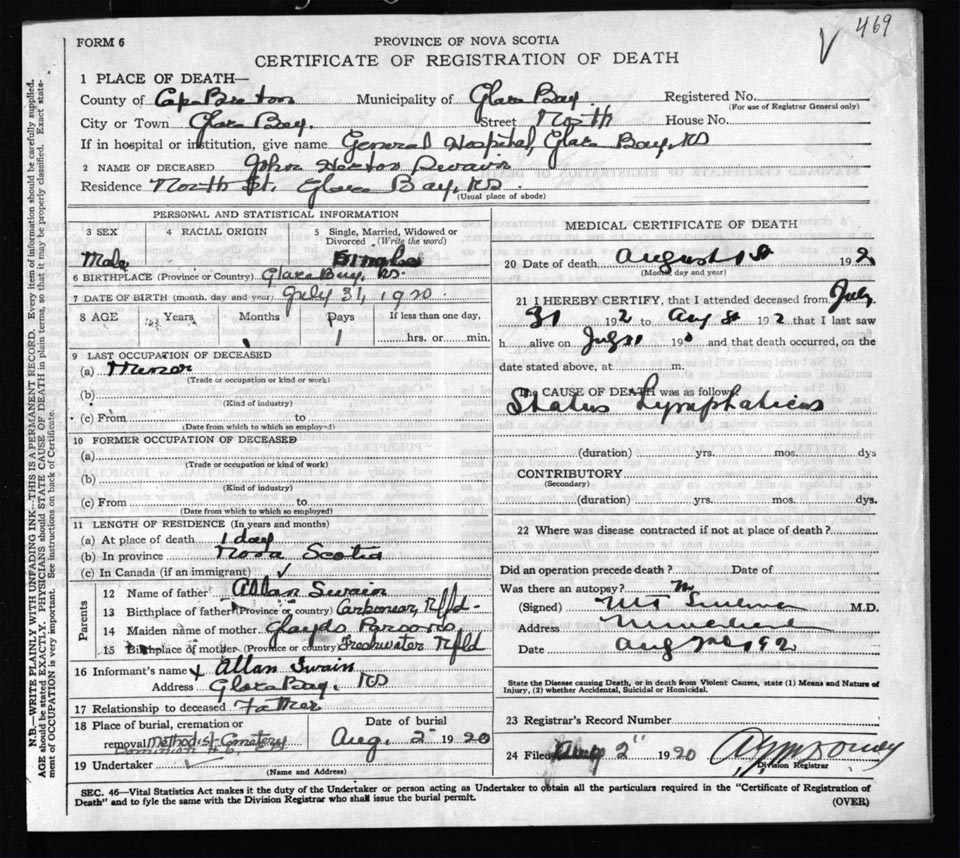 469
FORM 6
PROVINCE OF NOVA SCOTIA
CERTIFICATE OF REGISTRATION OF DEATH
1 PLACE OF DEATH—
County of Cape Breton Municipality of Glace Bay. Registered No.
(For use of Registrar General only)
City or Town Glace Bay. Street North House No.
If in hospital or institution, give name General Hospital, Glace Bay, NS
2 NAME OF DECEASED John Swain
Residence North St. Glace Bay, NS.
(Usual place of abode)
PERSONAL AND STATISTICAL INFORMATION
3 SEX 4 RACIAL ORIGIN 5 Single, Married, Widowed or Divorced. (Write the word)
Male Single
6 BIRTHPLACE (Province or Country) Glace Bay, NS.
7 DATE OF BIRTH (month, day and year) July 31, 1920.
8 AGE Years Months Days If less than one day,
1 hrs. or min.
9 LAST OCCUPATION OF DECEASED
(a) Minor
(Trade or occupation or kind or work)
(b)
(Kind of industry)
(c) From to
(Date from which to which so employed)
10 FORMER OCCUPATION OF DECEASED
(a)
(Trade or occupation or kind of work)
(b)
(Kind of industry)
(c) From to
(Date from which to which so employed)
11 LENGTH OF RESIDENCE (In years and months)
(a) At place of death 1 day
(b) In province Nova Scotia
(c) In Canada (if an immigrant) ✓
Parents
12 Name of father Allan Swain
13 Birthplace of father (Province or country) Carbonear, Nfld-
14 Maiden name of mother Glayds Parsons
15 Birthplace of mother (Province or country) Freshwater Nfld
16 Informant's name x Allan Swain
Address Glace Bay, NS
17 Relationship to deceased Father
18 Place of burial, cremation or removal Methodist Cemetery Date of burial
Aug. 2" 1920
19 Undertaker ✓
(Name and Address)
MEDICAL CERTIFICATE OF DEATH
20 Date of death August 1st 192
(Month, day and year)
21 I HEREBY CERTIFY, that I attended deceased from July
31 192 to Aug 192 that I last saw
h alive on July 31 19 and that death occurred, on the
date stated above, at m.
The CAUSE OF DEATH was as follows
Status Lymphaticus
(duration) yrs. mos. dys
CONTRIBUTORY
(Secondary)
(duration) yrs. mos. dys.
22 Where was disease contracted if not at place of death?
Did an operation precede death? Date of
Was there an autopsy?
(Signed) M.D.
Address
Date Aug
State the Disease causing Death, or in death from Violent Causes, state (1) Means and Nature of
Injury, (2) whether Accidental, Suicidal or Homicidal.
23 Registrar's Record Number
24 Filed 2" 1920
Division Registrar
SEC. 46—Vital Statistics Act makes it the duty of the Undertaker or person acting as Undertaker to obtain all the particulars required in the "Certificate of Registration of
Death" and to fyle the same with the Division Registrar who shall issue the burial permit. (OVER)
N.B.—WRITE PLAINLY WITH UNFADING INK—THIS IS A PERMANENT RECORD. Every item of information should be carefully supplied.
AGE should be stated EXACTLY. PHYSICIANS should STATE CAUSE OF DEATH in plain terms, so that it may be properly classified. Exact state-
ment of OCCUPATION is very important. See instructions on back of Certificate.